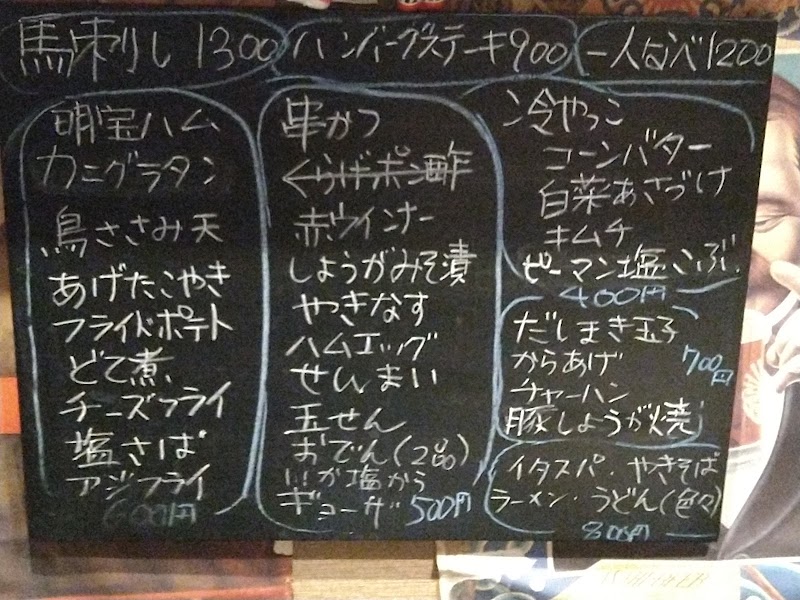 馬刺し 1300
ハンバーグステーキ900
一人なべ1200
明宝ハム
カニグラタン
鳥ささみ天
あげたこやき
フライドポテト
どて煮
チーズフライ
塩さば
アジフライ
600円
串かつ
くらげポン酢
赤ウインナー
しょうがみそ漬
やきなす
ハムエッグ
せんまい
玉せん
おでん(2品)
いか塩から
ギョーザ 500円
冷やっこ
コーンバター
白菜あさづけ
キムチ
ピーマン塩こぶ
400円
だしまき玉子
からあげ
チャーハン
豚しょうが焼
700円
イタスパ・やきそば
ラーメン・うどん(色々)
800円